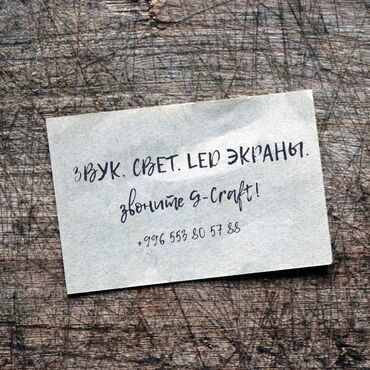 ЗВУК. СВЕТ. LED ЭКРАНЫ.
звоните G-Craft!
+996 553 80 57 88